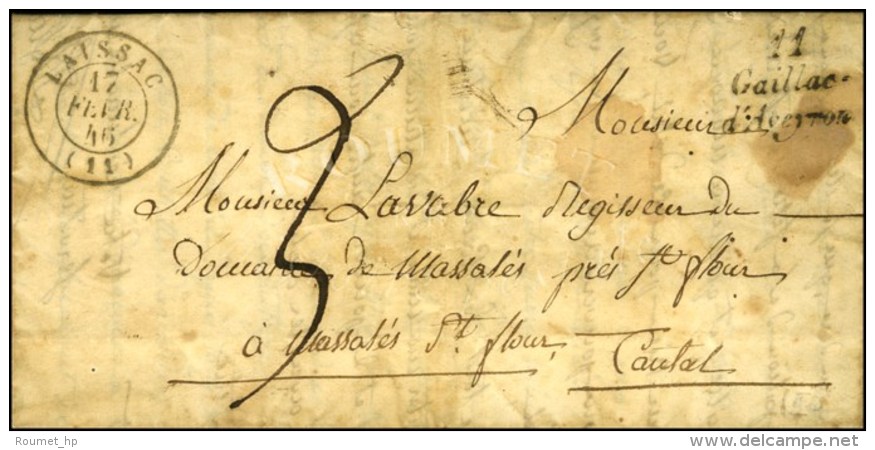 LAISSAC
17
FEVR.
46
(11)
11
Gaillac-
d'Aveyron
3
Monsieur
Monsieur Lavabre Regisseur du
Domaine de Massalés prés St flour
à Massalés St flour
Cantal
ROUMET
Roumet_hp
www.delcampe.net